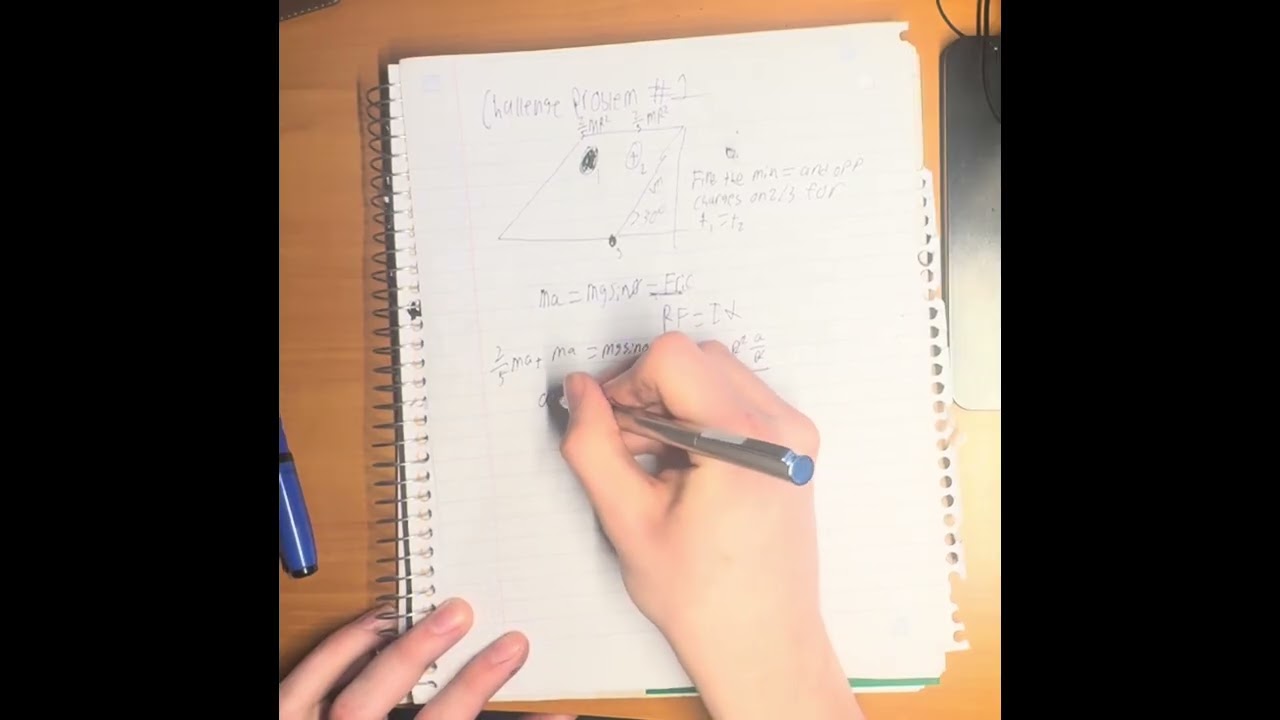 Challenge Problem #2
2/5 MR² 2/5 MR²
1 + 2
5m
30°
3
Find the min = and opp
charges on 2/3 for
t₁ = t₂
ma = mgsinθ - Fric
RF = Iα
2/5 ma + ma = mgsinθ R² a/R
a